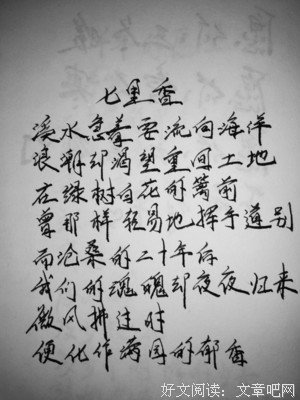 七里香
溪水急着要流向海洋
浪潮却渴望重回土地
在绿树白花的篱前
曾那样轻易地挥手道别
而沧桑的二十年后
我们的魂魄却夜夜归来
微风拂过时
便化作满园的郁香
好文阅读：文章吧网